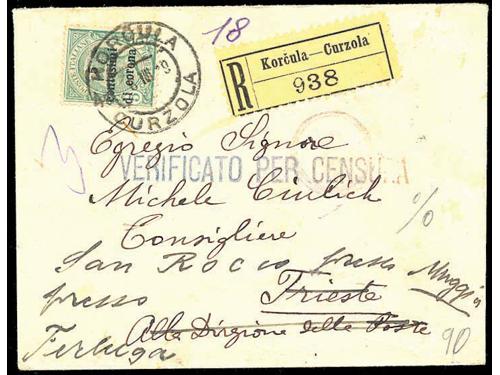 18
POSTE ITALIANE
centesimi
di corona
KORČULA
CURZOLA
R
Korčula—Curzola
938
Egregio Signore
VERIFICATO PER CENSURA
Michele Ciulich
%
Consigliere
San Rocco presso Muggia
presso Trieste
Alla Dirzione delle Poste
Ferluga
90